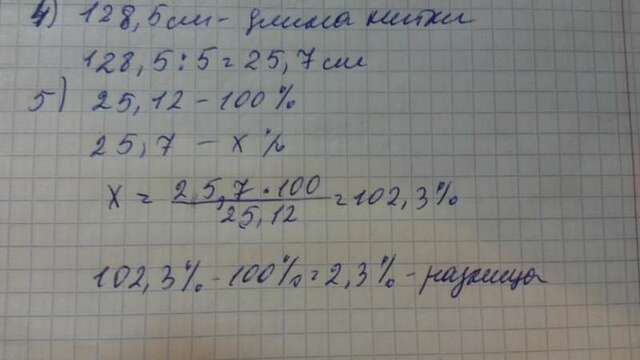 4) 128,5см - длина нитки
128,5:5=25,7см
5) 25,12 - 100%
25,7 - х%
х = 25,7·100 / 25,12 = 102,3%
102,3% - 100% = 2,3% - разница